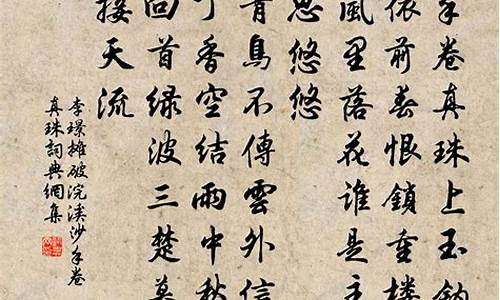 手卷真珠上玉鈎
依前春恨鎖重樓
風里落花誰是主
思悠悠
青鳥不傳雲外信
丁香空結雨中愁
回首綠波三楚暮
接天流
李璟攤破浣溪沙手卷
真珠詞典網集